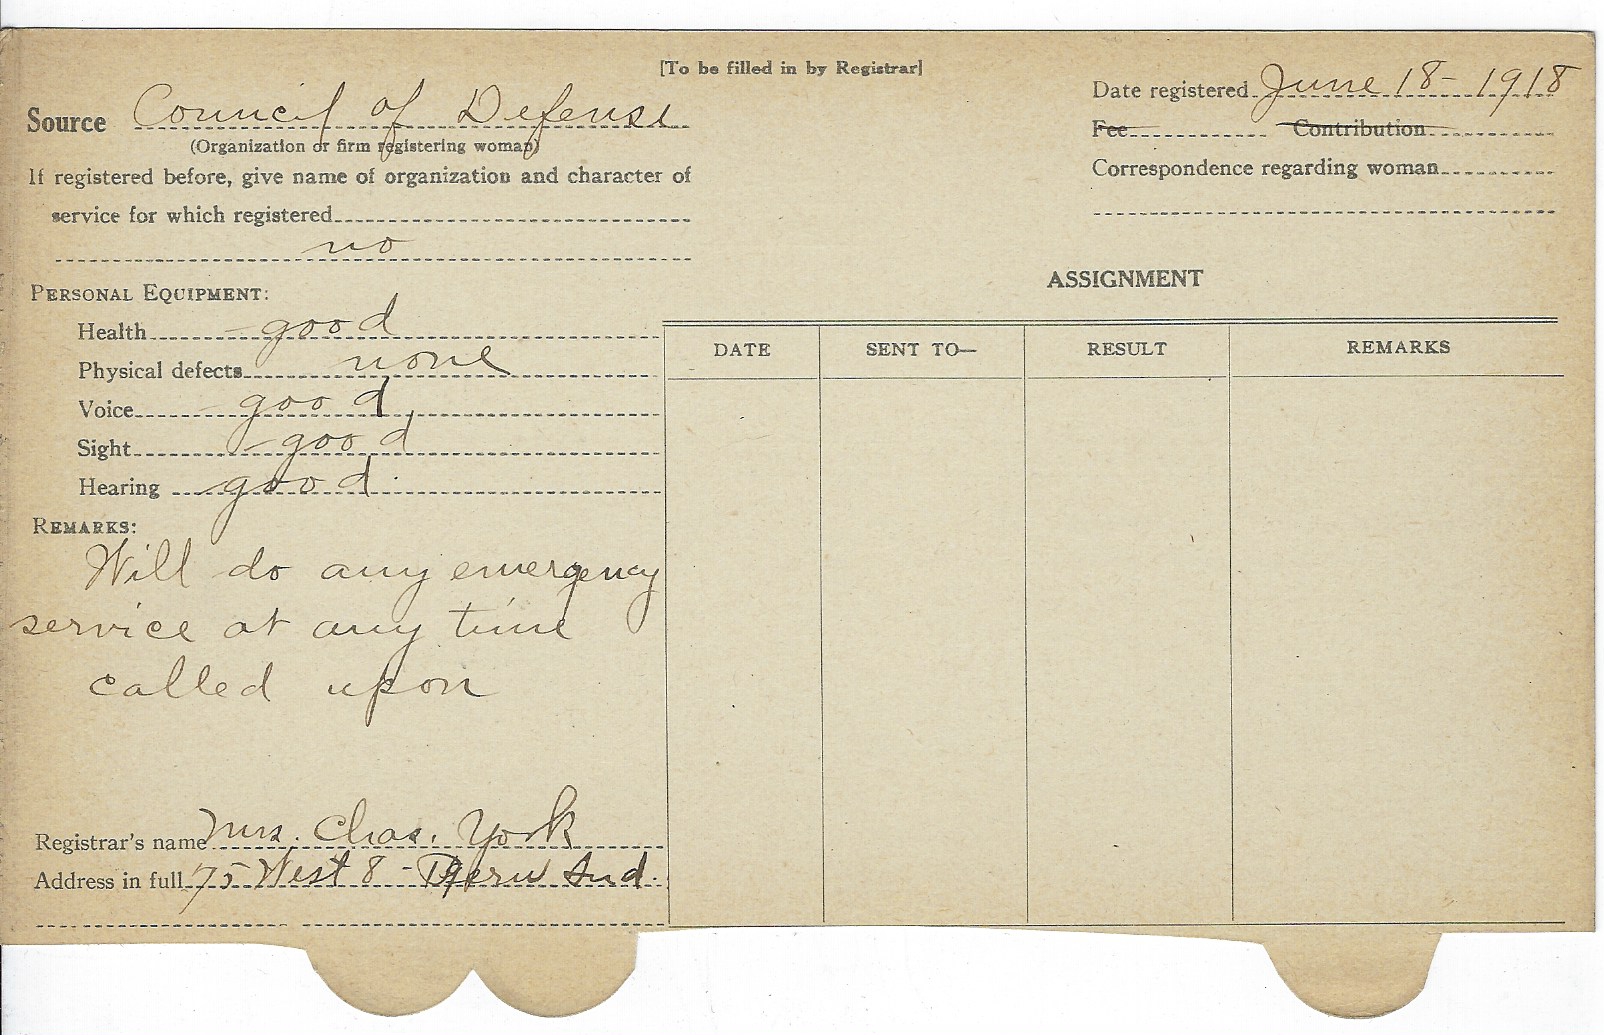 [To be filled in by Registrar]
Source Council of Defense
(Organization or firm registering woman)
If registered before, give name of organization and character of
service for which registered
no
PERSONAL EQUIPMENT:
Health good
Physical defects none
Voice good
Sight good
Hearing good
REMARKS:
Will do any emergency
service at any time
called upon
Registrar's name Mrs. Chas. York
Address in full 75 West 8 - Peru Ind.
Date registered June 18 - 1918
Fee Contribution
Correspondence regarding woman
ASSIGNMENT
DATE SENT TO— RESULT REMARKS